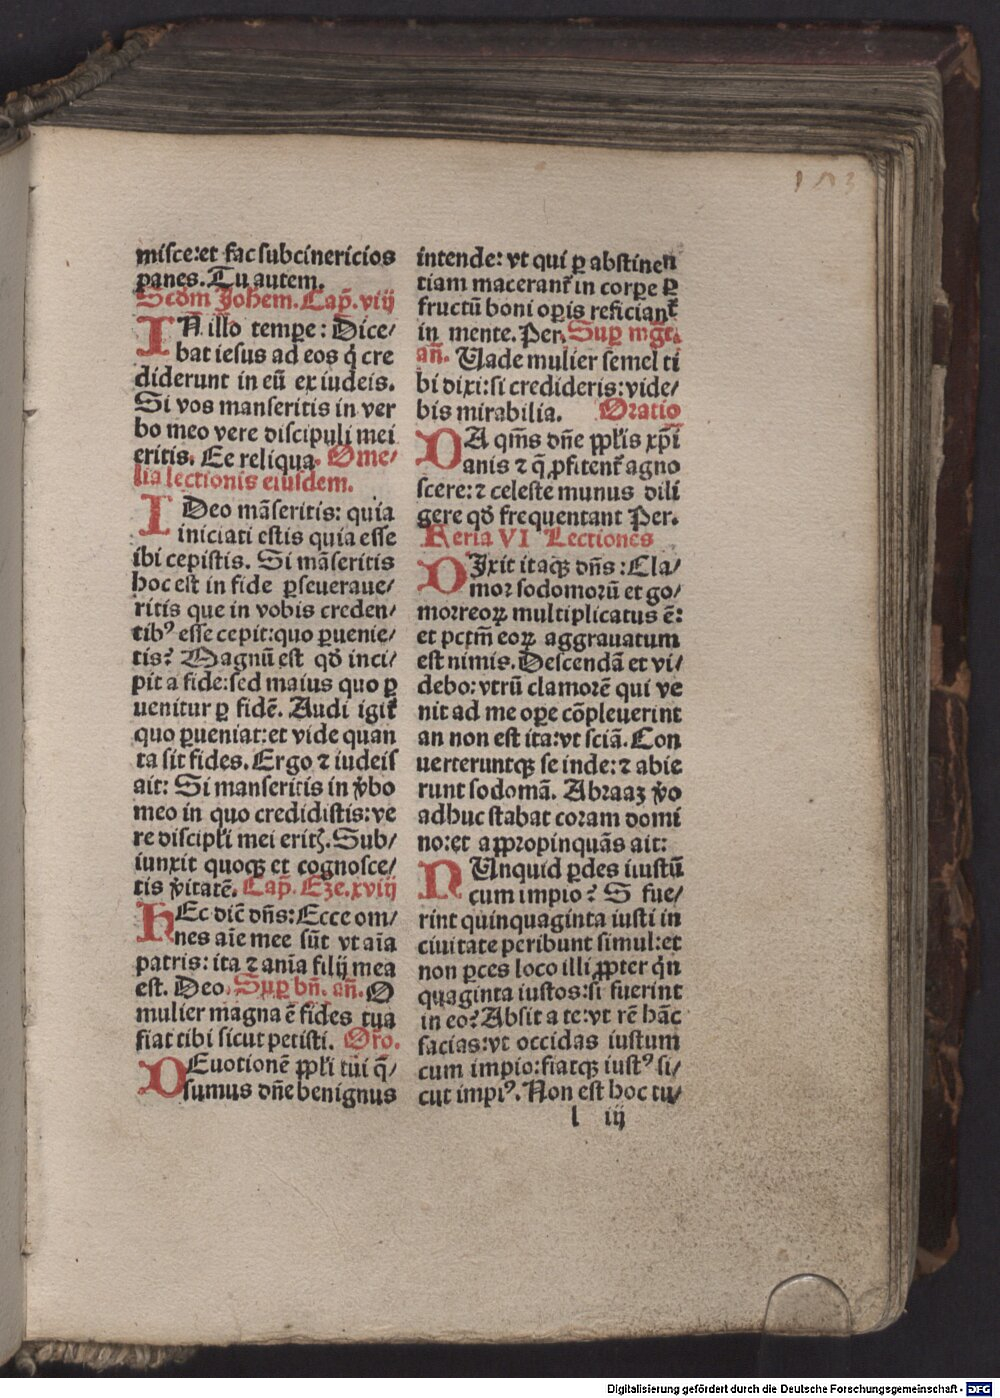 113
misce:et fac subcinericios
panes. Tu autem.
Scdm Johem. Cap̄. viij
IN illo tempe: Dice/
bat iesus ad eos q̇ cre
diderunt in eū ex iudeis.
Si vos manseritis in ver
bo meo vere discipuli mei
eritis. Ee reliqua. Ome/
lia lectionis eiusdem.
IDeo māseritis: quia
iniciati estis quia esse
ibi cepistis. Si māseritis
hoc est in fide ꝑseueraue/
ritis que in vobis creden/
tibꝰ esse cepit:quo ꝑuenie/
tis? Magnū est qď inci/
pit a fide:sed maius quo ꝑ
uenitur ꝑ fidē. Audi igit᷑
quo ꝑueniat:et vide quan
ta sit fides. Ergo ⁊ iudeis
ait: Si manseritis in v̾bo
meo in quo credidistis:ve
re discipl̄i mei eritꝭ. Sub/
iunxit quoqꝫ et cognosce/
tis v̾itatē. Cap̄. Eze.xviij
HEc dic̄ dn̄s: Ecce om/
nes aīe mee sūt vt aīa
patris: ita ⁊ anīa filij mea
est. Deo. Suꝑ bn̄. an̄. O
mulier magna ē fides tua
fiat tibi sicut petisti. Oro.
DEuotionē ppl̄i tui q̄/
sumus dn̄e benignus
intende: vt qui ꝑ abstinen
tiam macerant᷑ in corpe ꝑ
fructū boni oꝑis reficiant᷑
in mente. Per. Suꝑ mgt.
an̄. Uade mulier semel ti
bi dixi:si credideris:vide/
bis mirabilia. Oratio
DA qm̄s dn̄e ppl̄is xp̄i
anis ⁊ q̄ ꝓfitent᷑ agno
scere:⁊ celeste munus dili
gere qď frequentant Per.
Feria VI Lectiones
DIxit itaqꝫ dn̄s: Cla/
mor sodomorū et go/
morreoꝝ multiplicatus ē:
et pctm̄ eoꝝ aggrauatum
est nimis. Descendā et vi/
debo: vtrū clamorē qui ve
nit ad me oꝑe cōpleuerint
an non est ita:vt sciā. Con
uerteruntqꝫ se inde:⁊ abie
runt sodomā. Abraaz v̾o
adhuc stabat coram domi
no:et appropinquās ait:
NUnquid ꝑdes iustū
cum impio? S fue/
rint quinquaginta iusti in
ciuitate peribunt simul:et
non ꝑces loco illi ꝓpter q̇n
quaginta iustos:si fuerint
in eo? Absit a te:vt rē hāc
facias:vt occidas iustum
cum impio:fiatqꝫ iustꝰ si/
cut impiꝰ. Non est hoc tu/
l iij
Digitalisierung gefördert durch die Deutsche Forschungsgemeinschaft - DFG